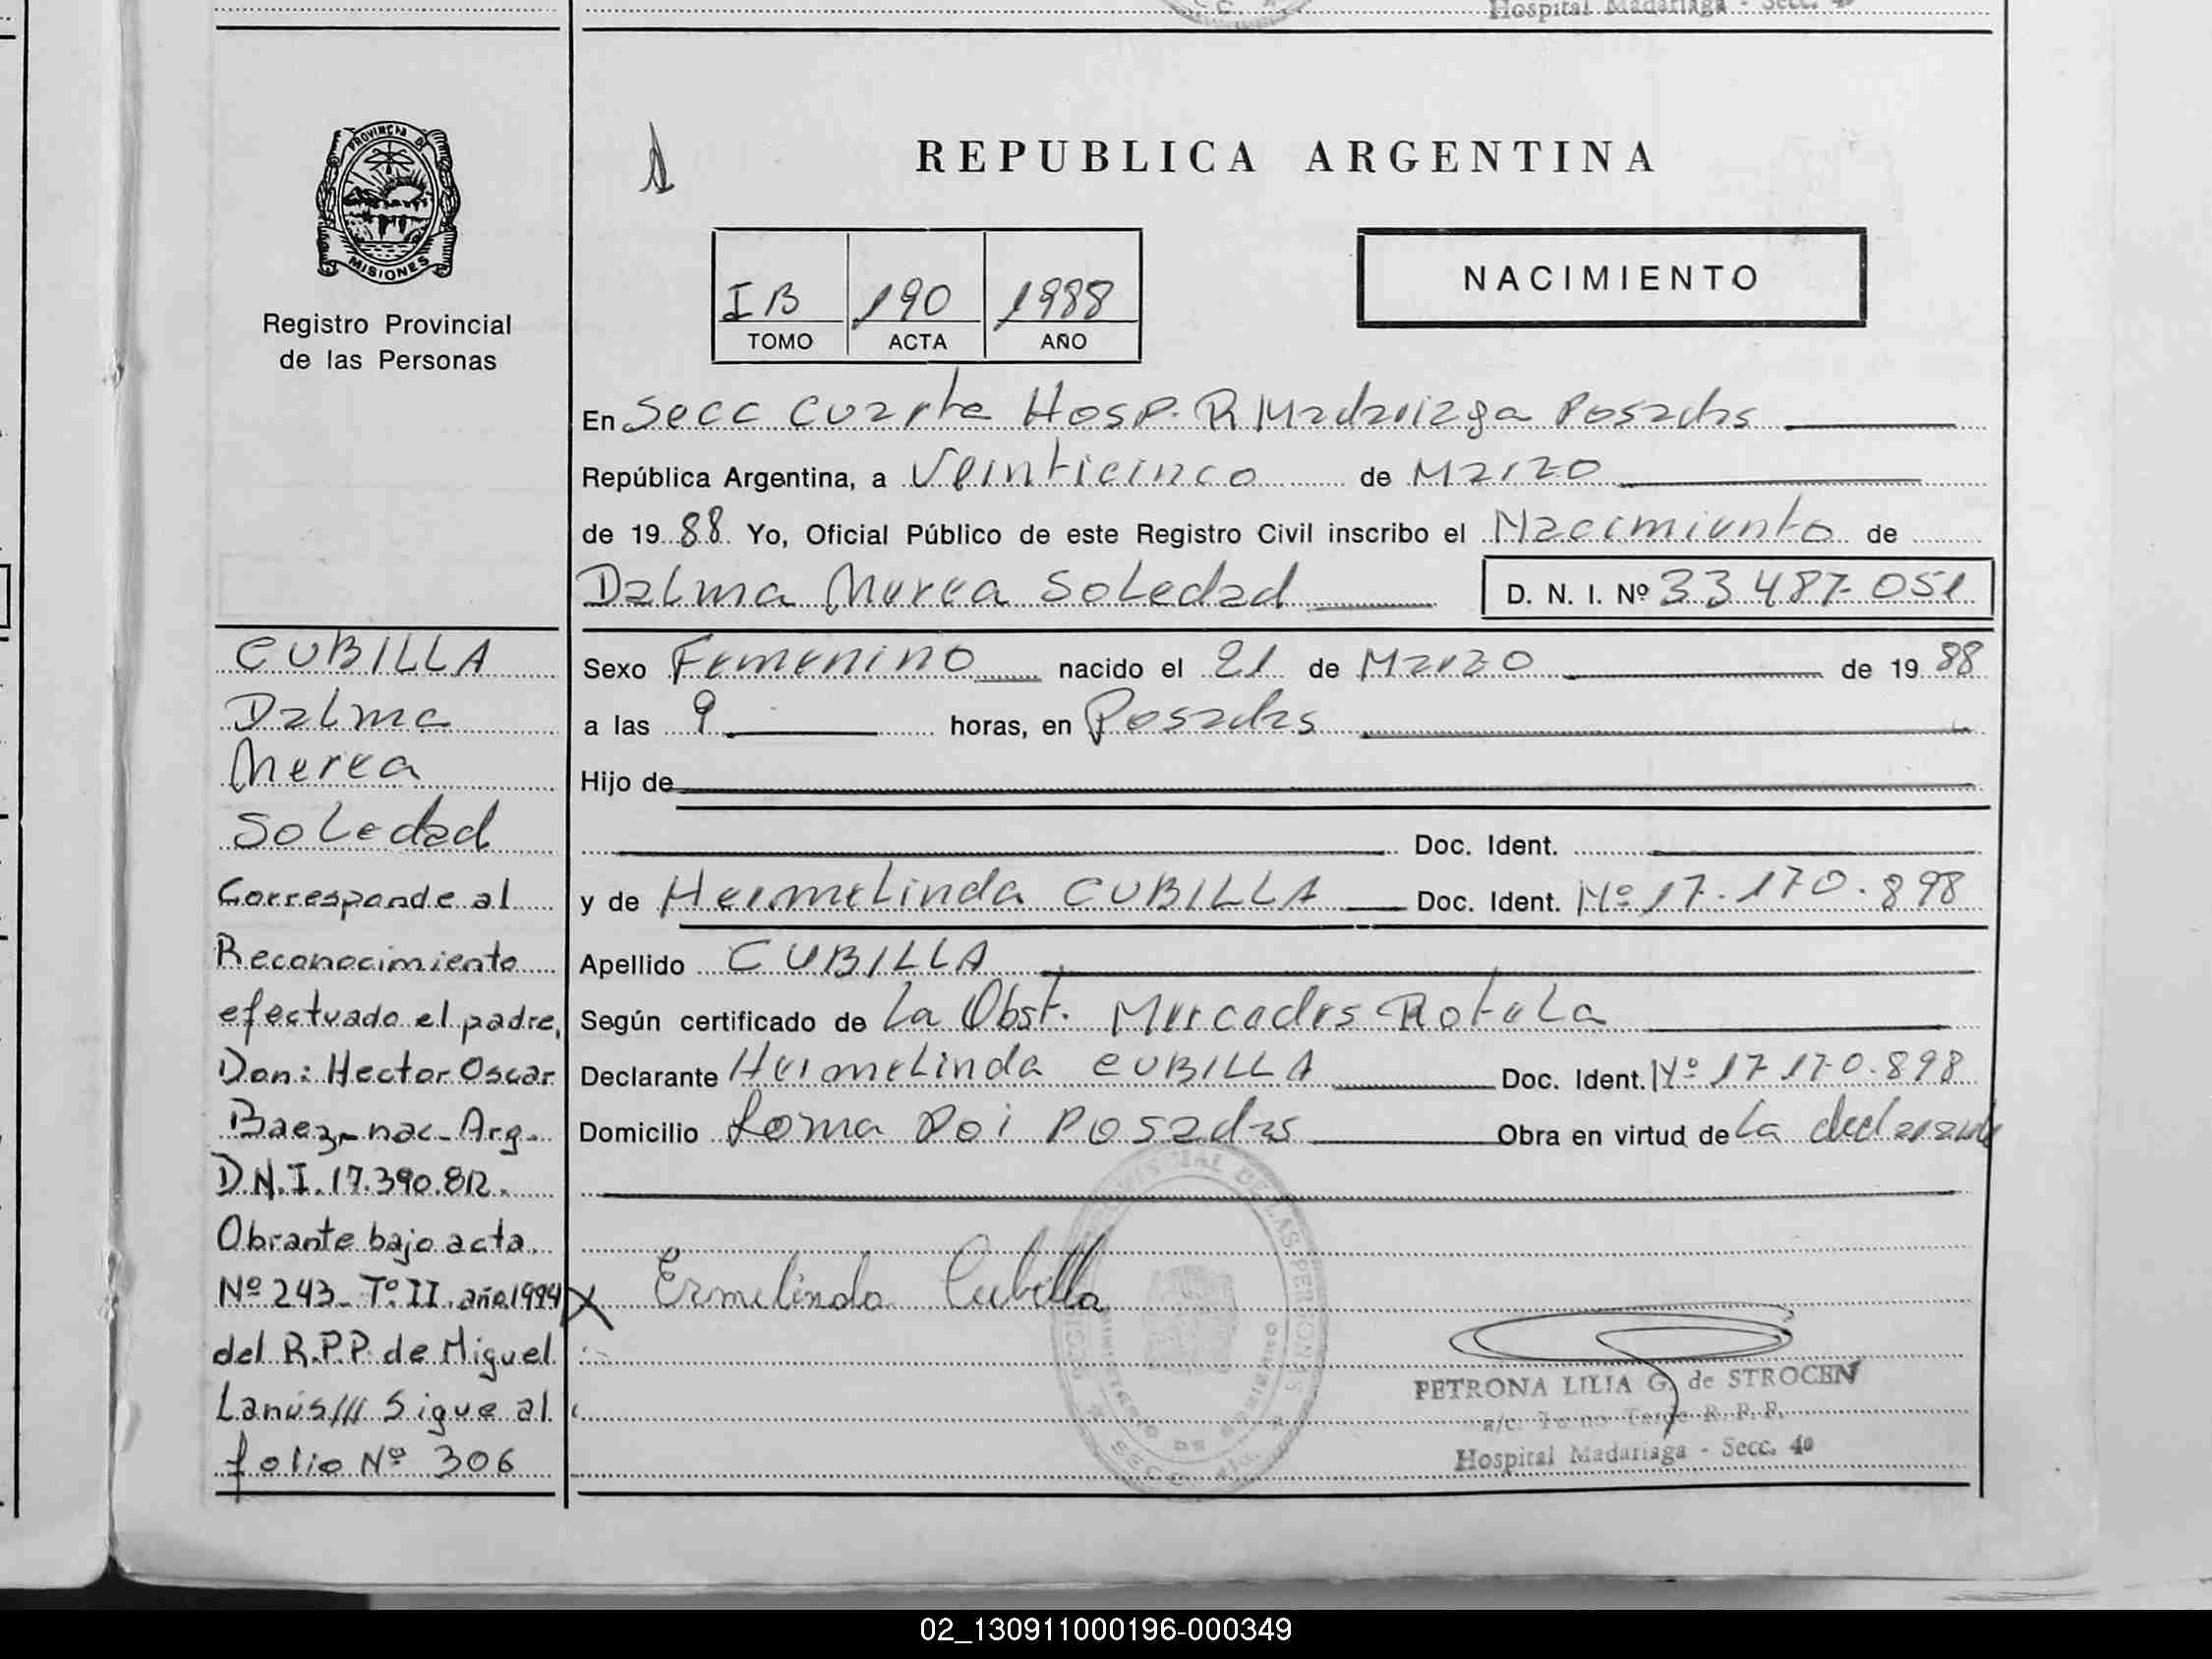 Hospital Madariaga - Secc. 4º
PROVINCIA DE
MISIONES
Registro Provincial
de las Personas
REPUBLICA ARGENTINA
IB 190 1988
TOMO ACTA AÑO
NACIMIENTO
En Secc Cuarta Hosp. R Madariaga Posadas
República Argentina, a Veinticinco de Marzo
de 1988 Yo, Oficial Público de este Registro Civil inscribo el Nacimiento de
Dalma Nerea Soledad D. N. I. Nº 33 487 051
Sexo Femenino nacido el 21 de Marzo de 1988
a las 9 horas, en Posadas
Hijo de
Doc. Ident.
y de Hermelinda CUBILLA Doc. Ident. Nº 17.170.898
Apellido CUBILLA
Según certificado de La Obst. Mercedes Rotela
Declarante Hermelinda CUBILLA Doc. Ident. Nº 17 170.898
Domicilio Loma Poi Posadas Obra en virtud de La declarante
Ermelinda Cubilla
PETRONA LILIA G. de STROCEN
a/c. Turno Tarde R. P. P.
Hospital Madariaga - Secc. 4º
CUBILLA
Dalma
Nerea
Soledad
Corresponde al
Reconocimiento
efectuado el padre,
Don: Hector Oscar
Baez- nac- Arg-
D.N.I. 17.390.812.
Obrante bajo acta
Nº 243- Tº II año 1994
del R.P.P. de Miguel
Lanús/// Sigue al
folio Nº 306
02_130911000196-000349